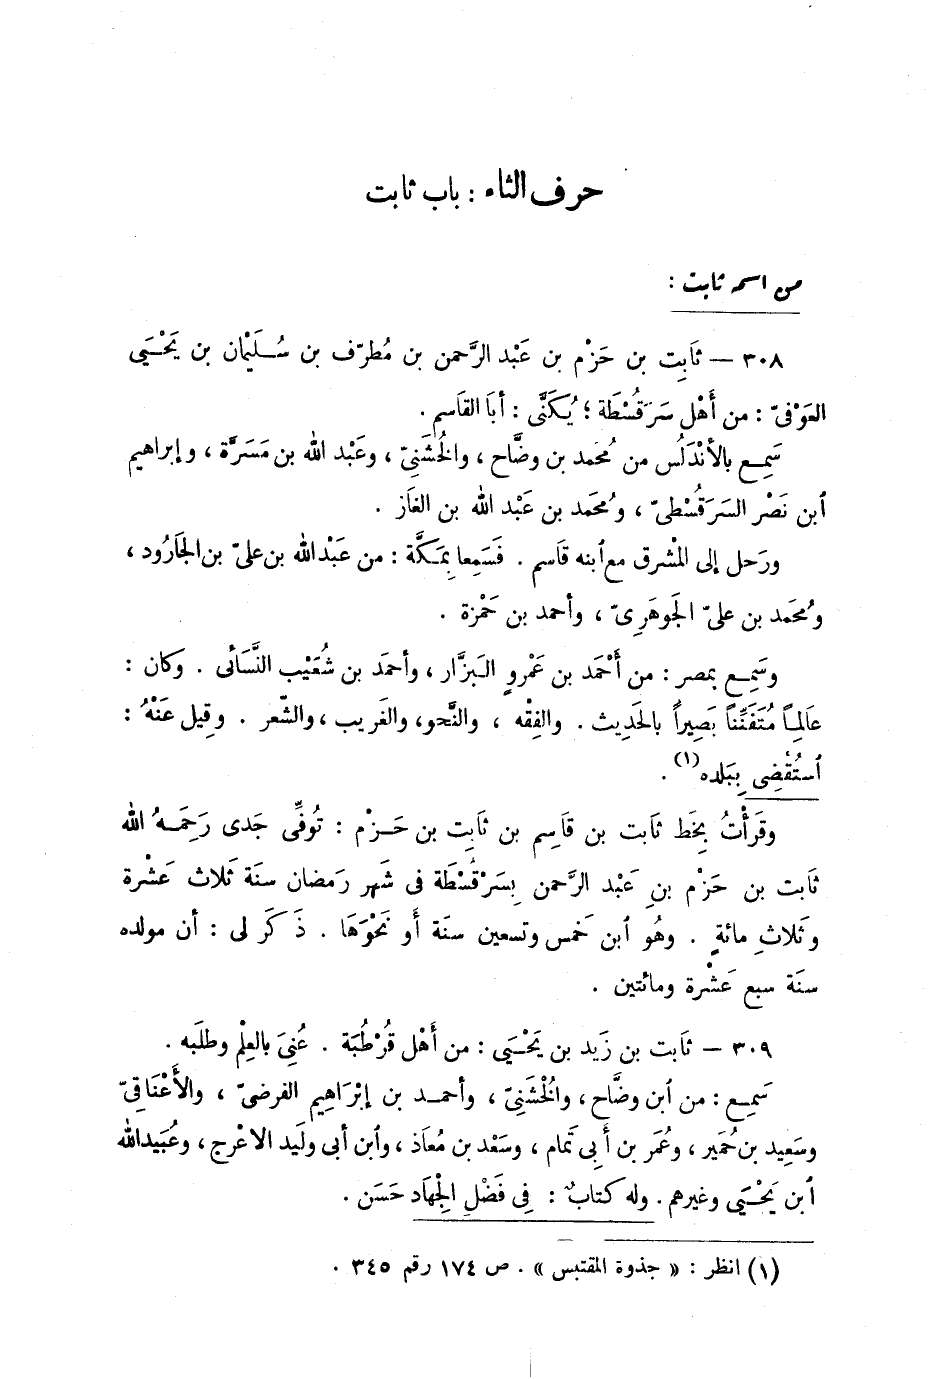 حرف الثاء : باب ثابت
من اسمه ثابت :
٣٠٨ — ثَابِت بن حَزْم بن عَبْد الرَّحمن بن مُطرّف بن سُلَيْمان بن يَحْيَى
العَوْفىّ : من أَهْل سَرَقُسْطَة ؛ يُكَنَّى : أبَا القَاسِم .
سَمِع بالأنْدَلُس من مُحمَد بن وضَّاح ، والخُشَنِىّ ، وعَبْد الله بن مَسَرَّة ، وإبراهيم
ٱبن نَصْر السَرَقُسْطىّ ، ومُحمَد بن عَبْد الله بن الغَاز .
ورَحل إلى المْشرق مع ٱبنه قَاسم . فَسَمِعا بِمَكَّة : من عَبْد الله بن علىّ بن الجَارُود ،
ومُحمَد بن علىّ الجَوهَرِىّ ، وأحمد بن حَمْزة .
وسَمِع بمصر : من أَحْمَد بن عَمْرٍو البَزَّار ، وأحمَد بن شُعَيْب النَّسَائى . وكَان :
عَالِماً مُتَفَنِّناً بَصِيراً بالحَدِيث . والفِقْه ، والنَّحو ، والغَريب ، والشّعر . وقِيل عَنْهُ :
ٱستُقْضِى بِبَلده (١) .
وقَرَأْتُ بِخَط ثَابت بن قَاسِم بن ثَابِت بن حَزْم : تُوفِّى جَدى رَحِمَهُ الله
ثَابت بن حَزْم بنِ عَبْد الرَّحمن بِسَرْقُسْطَة فى شَهر رَمضان سنَة ثَلاث عَشْرة
وثَلاثِ مائةٍ . وهُو ٱبن خَمس وتسعين سنَة أَو نَحْوَهَا . ذَكَر لى : أن مولده
سنَة سبع عَشْرة ومائتين .
٣٠٩ — ثَابت بن زَيد بن يَحْيَى : من أَهْل قُرْطُبَة . عُنِىَ بالعِلْم وطلَبه .
سَمِع : من ٱبن وضَّاح ، والخُشَنِىّ ، وأحمد بن إبْرَاهِيم الفرضىّ ، والأَعْنَاقِىّ
وسَعِيد بن حُمَير ، وعُمَر بن أَبِى تَمام ، وسَعْد بن مُعَاذ ، وٱبن أبى ولَيد الاعْرج ، وعُبَيدالله
ٱبن يَحْيَى وغيرهم . وله كتابٌ : فِى فَضْل الجْهَاد حَسَن .
(١) انظر : « جذوة المقتبس » . ص ١٧٤ رقم ٣٤٥ .